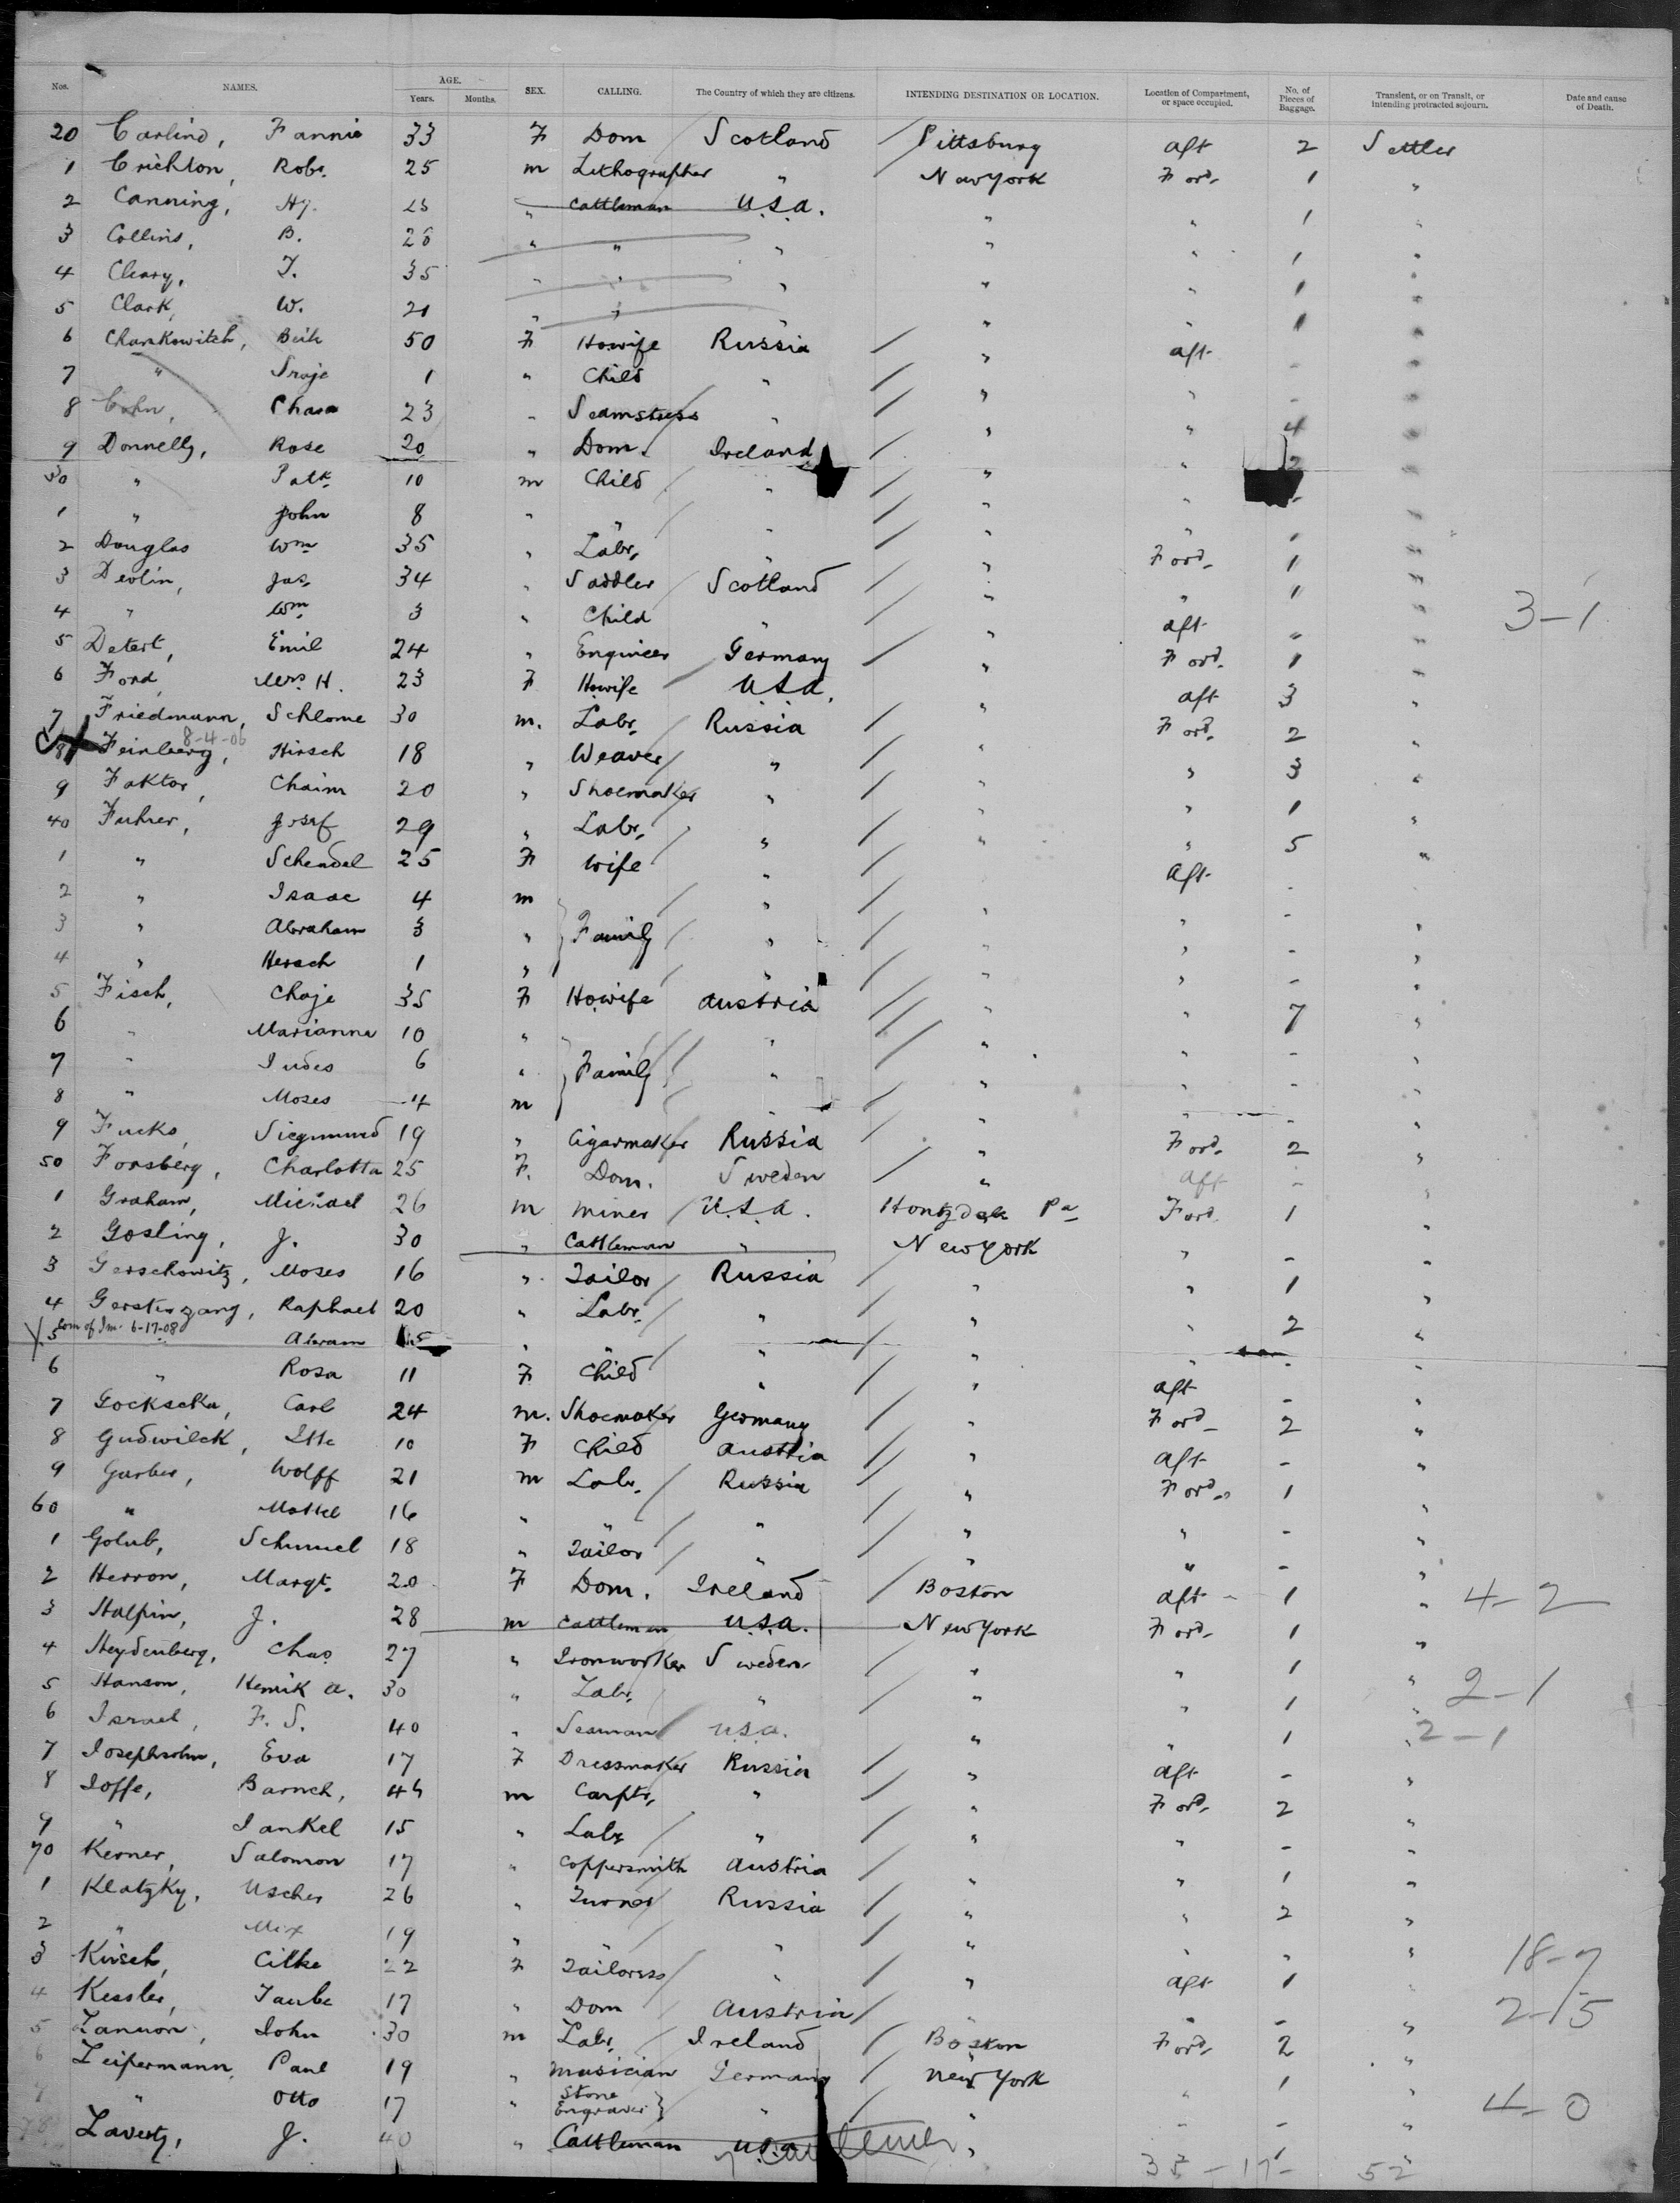 Nos. NAMES. AGE. Years. Months. SEX. CALLING. The Country of which they are citizens. INTENDING DESTINATION OR LOCATION. Location of Compartment, or space occupied. No. of Pieces of Baggage. Transient, or on Transit, or intending protracted sojourn. Date and cause of Death.
20 Carlind, Fannie 33 F Dom Scotland Pittsburg aft 2 Settler
1 Crichton, Robt. 25 m Lithographer " New York Ford. 1 "
2 Canning, Hy. 23 " Cattleman U.S.A. " " 1 "
3 Collins, B. 28 " " " " " 1 "
4 Cleary, T. 35 " " " " " 1 "
5 Clark, W. 21 " " " " " 1 "
6 Charkowitch, Beile 50 F Howife Russia / " aft - "
7 " Sroje 1 " Child " / " " - "
8 Cohn, Chasa 23 " Seamstress " / " " 4 "
9 Donnelly, Rose 20 " Dom. Ireland / " " 2 "
30 " Patk. 10 m Child " / " " - "
1 " John 8 " " " / " " - "
2 Douglas Wm 35 " Labr. " / " Ford. 1 "
3 Devlin, Jas. 34 " Saddler Scotland / " " 1 "
4 " Wm 3 " Child " / " aft " " 3-1
5 Detert, Emil 24 " Engineer Germany / " Ford. 1 "
6 Ford, Mrs. H. 23 F Howife U.S.A. " aft 3 "
7 Friedmann, Schlome 30 m. Labr. Russia / " Ford. 2 "
8-4-06
8 Feinberg, Hirsch 18 " Weaver " / " " 3 "
9 Faktor, Chaim 20 " Shoemaker " / " " 1 "
40 Fuhrer, Josef 29 " Labr. " / " " 5 "
1 " Schendel 25 F Wife " / " Aft - "
2 " Isaac 4 m " / " " - "
3 " Abraham 3 " } Family " / " " - "
4 " Hersch 1 " " / " " - "
5 Fisch, Chaje 35 F Howife Austria // " " 7 "
6 " Marianna 10 " " // " " - "
7 " Judes 6 " } Family " // " " - "
8 " Moses 4 m " // " " - "
9 Fucks, Siegmund 19 " Cigarmaker Russia / " Ford. 2 "
50 Forsberg, Charlotta 25 F. Dom. Sweden / " aft - "
1 Graham, Michael 26 m miner U.S.A. Pa Ford. 1 "
2 Gosling, J. 30 " Cattleman " New York " - "
3 Gerschowitz, Moses 16 " Tailor Russia / " " 1 "
4 Gerstenzang, Raphael 20 " Labr. " / " " 2 "
Com of Im. 6-17-08
5 Abram " " " / " " - "
6 " Rosa 11 F Child " / " aft - "
7 Gockscka, Carl 24 m. Shoemaker Germany / " Ford. 2 "
8 Gudwilck, Itte 10 F Child Austria // " aft - "
9 Garber, Wolff 21 m Labr. Russia / " Ford. 1 "
60 " Mottel 16 " " " / " " - "
1 Golub, Schmuel 18 " Tailor " / " " - "
2 Herron, Margt. 20 F Dom. Ireland / Boston aft 1 " 4-2
3 Halpin, J. 28 m Cattleman U.S.A. New York Ford. 1 "
4 Heydenberg, Chas. 27 " Ironworker Sweden / " " 1 "
5 Hanson, Henrik A. 30 " Labr. " / " " 1 " 2-1
6 Israel, F. S. 40 " Seaman U.S.A. / " " 1 " 2-1
7 Josephsohn, Eva 17 F Dressmaker Russia / " aft - "
8 Joffe, Baruch, 45 m Carptr. " / " Ford. 2 "
9 " Jankel 15 " Labr " / " " - "
70 Kerner, Salomon 17 " Coppersmith Austria / " " 1 "
1 Klatzky, Uscher 26 " Turner Russia / " " 2 "
2 " 19 " " " / " " " "
3 Kirsch, Cilke 22 F Tailoress " / " aft 1 " 18-7
4 Kessler, Taube 17 " Dom Austria / " " - " 2-15
5 Lannon, John 30 m Labr. Ireland / Boston Ford. 2 "
6 Leifermann, Paul 19 " Musician Germany / New York " 1 "
7 " Otto 17 " Stone Engraver } " / " - - " 4-0
78 Laverty, J. 40 " Cattleman U.S.A. "
7 Cattlemen
35 - 17 - 52